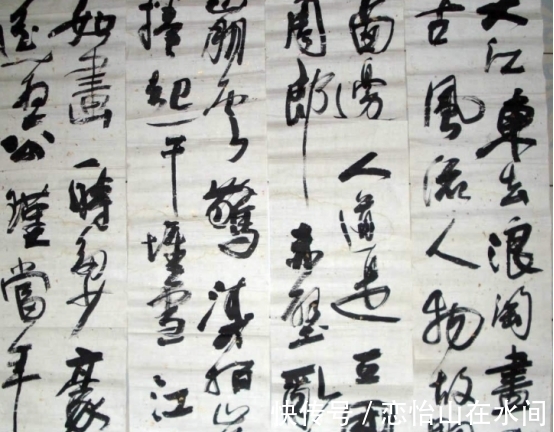 大江東去浪淘盡
古風流人物故
西邊人道是三國
周郎赤壁亂
崩雲驚濤拍岸
捲起千堆雪江
如畫一時多少豪
遙想公瑾當年
快传号 / 恋怡山在水间